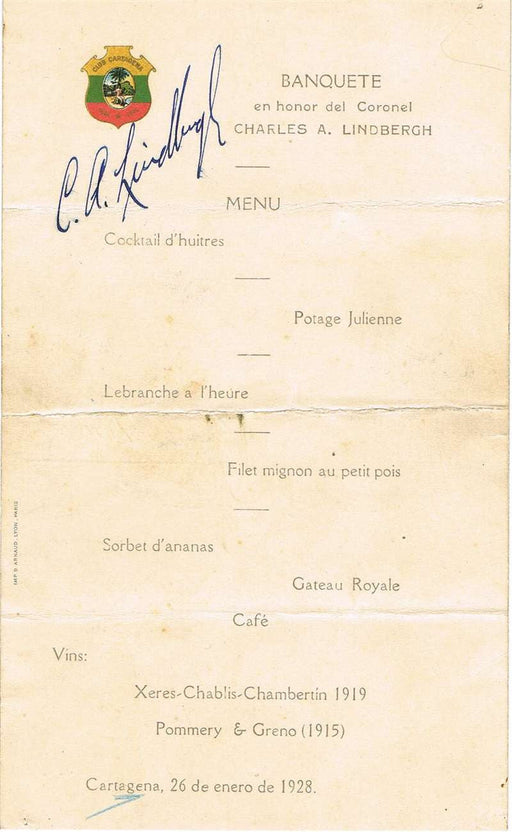 CLUB CARTAGENA
C. A. Lindbergh
BANQUETE
en honor del Coronel
CHARLES A. LINDBERGH
MENU
Cocktail d'huitres
Potage Julienne
Lebranche a l'heure
Filet mignon au petit pois
Sorbet d'ananas
Gateau Royale
Café
Vins:
Xeres-Chablis-Chambertin 1919
Pommery & Greno (1915)
Cartagena, 26 de enero de 1928.
IMP. B. ARNAUD, LYON, PARIS